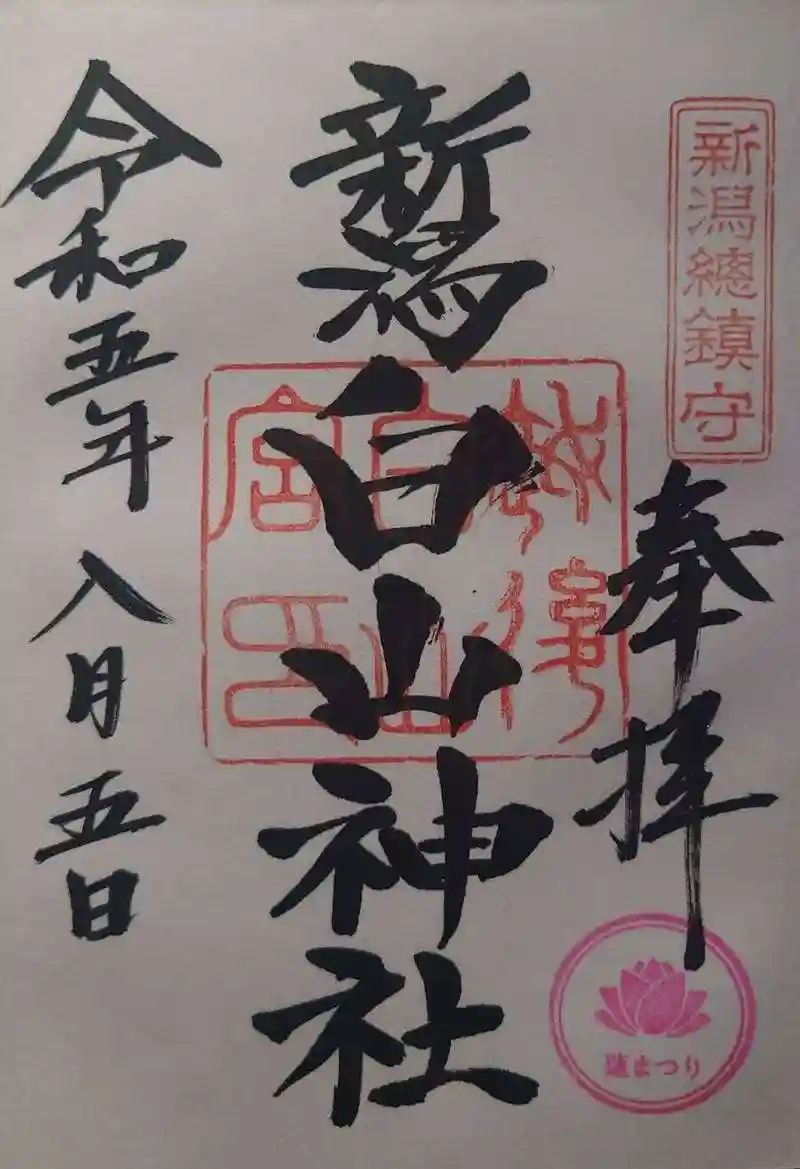 新潟總鎮守
奉拝
蓮まつり
新潟白山神社
令和五年 八月五日